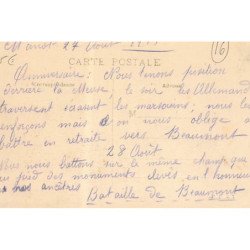 Manot 27 Août
16
CARTE POSTALE
Anniversaire : Nous tenons position
derrière la Meuse, le soir les Allemands
traversent la nous les
enfonçons mais on nous oblige à
battre en retraite vers Beaumont
28 Août
nous battons sur le même champ que
au pied des monuments élevés en l'honneur
nos ancêtres Bataille de Beaumont